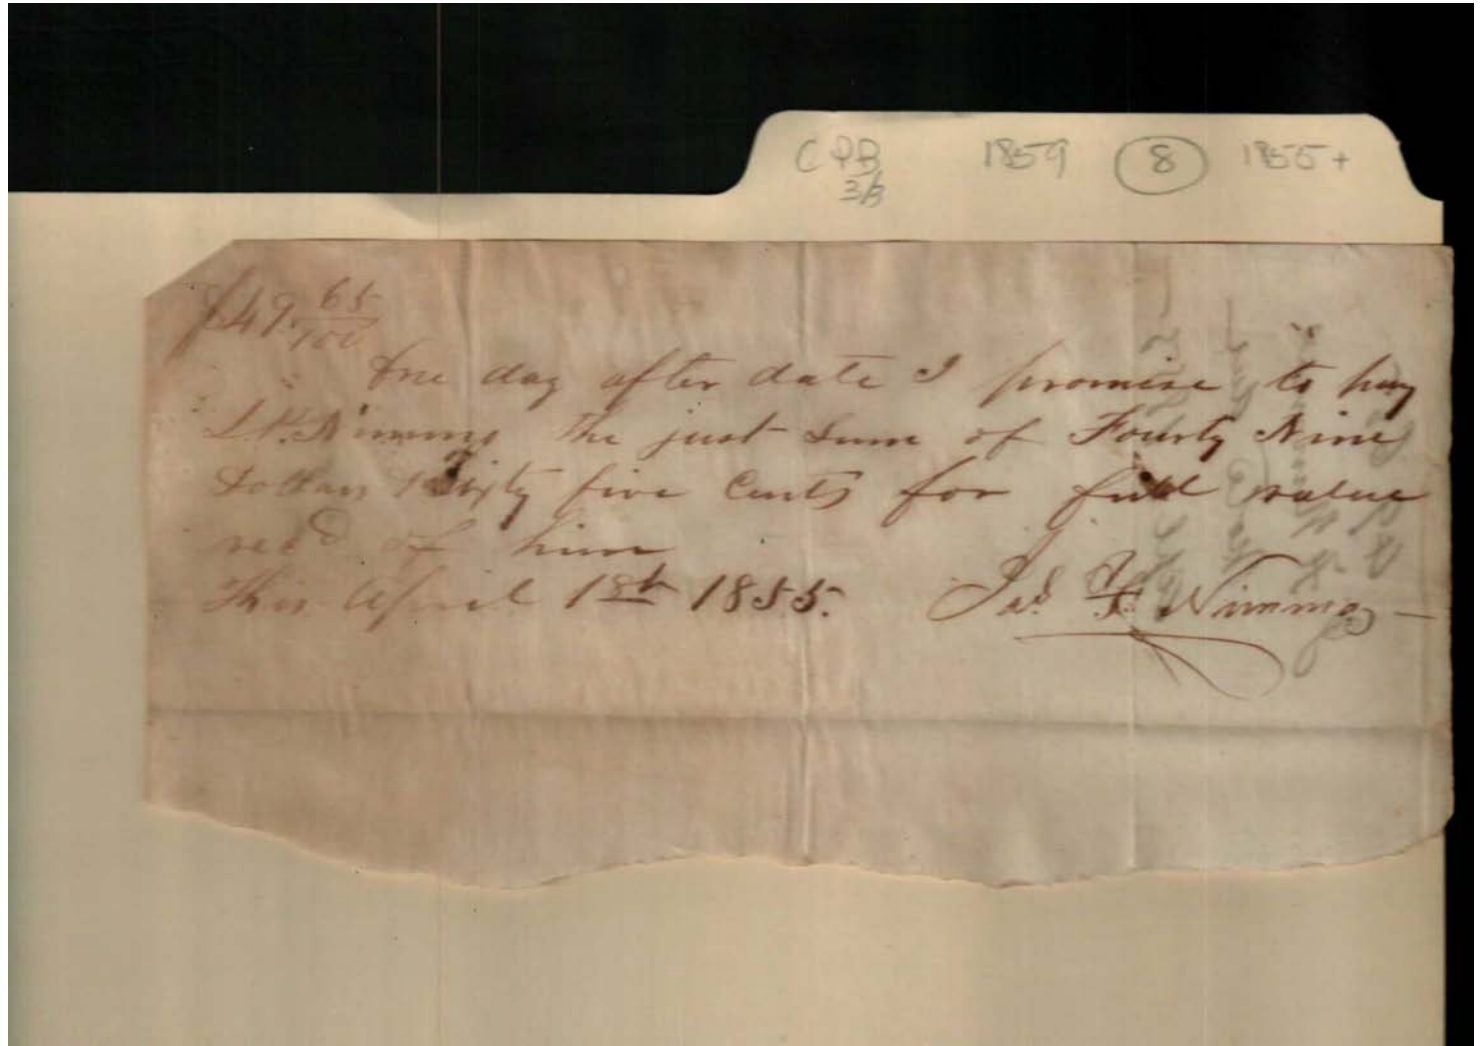 CPB 1859 8 1855+
3/3
$49. 65/100
One day after date I promise to pay
L.P. Nimmo the just sum of Fourty Nine
Dollars Sixty five Cents for full value
recd of him
This April 18th 1855. Jas. F. Nimmo